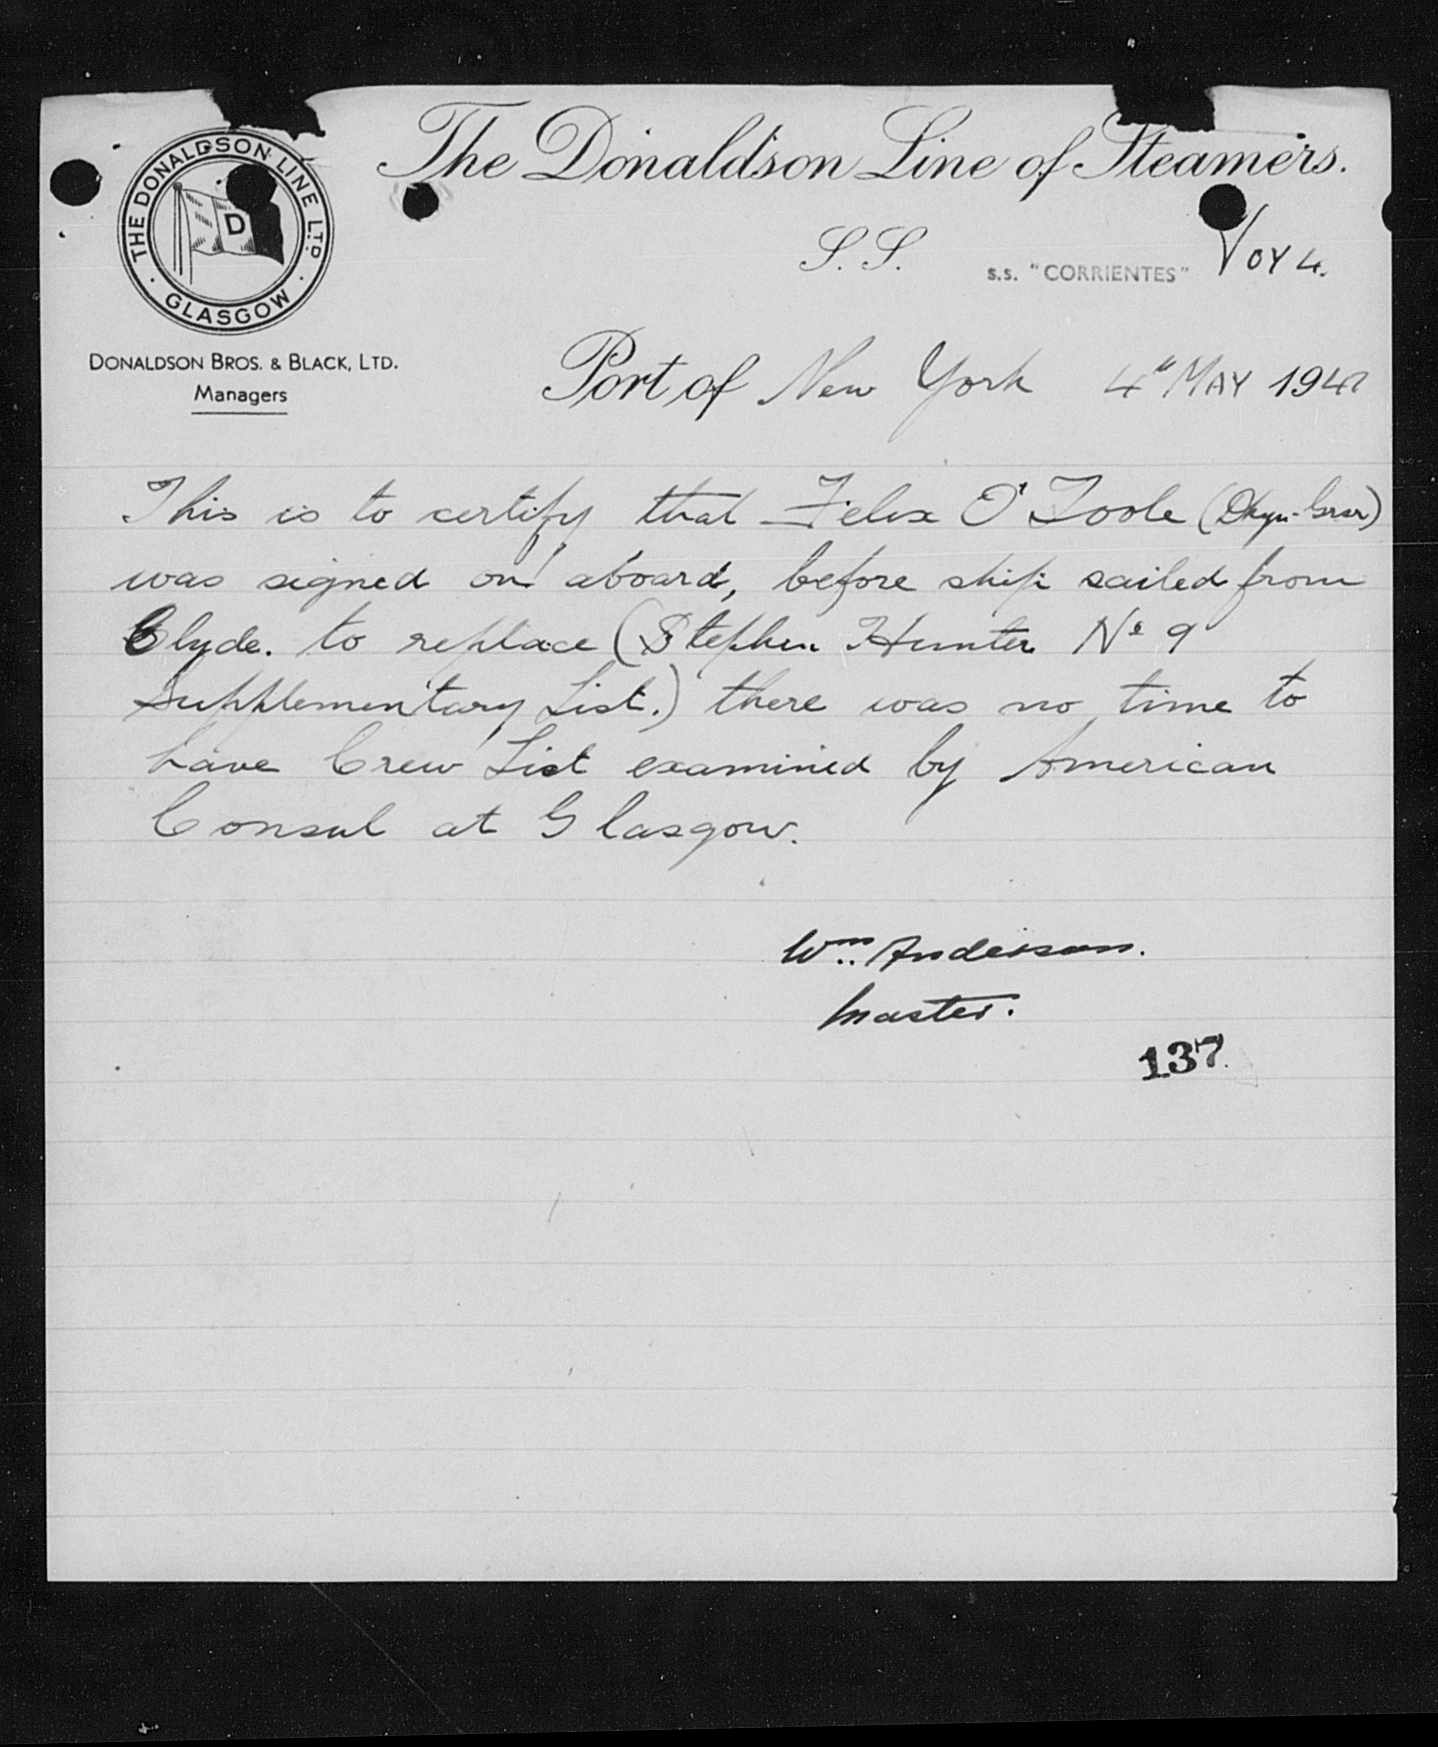 The Donaldson Line of Steamers.
THE DONALDSON LINE LTD.
D
· GLASGOW ·
DONALDSON BROS. & BLACK, LTD.
Managers
S.S. S.S. "CORRIENTES" VOY 4.
Port of New York 4th MAY 194
This is to certify that Felix O'Toole (Dkyn-Grsr)
was signed on aboard, before ship sailed from
Clyde. to replace (Stephen Hunter No 9
Supplementary List.) there was no time to
have Crew List examined by American
Consul at Glasgow.
Wm. Anderson.
Master.
137